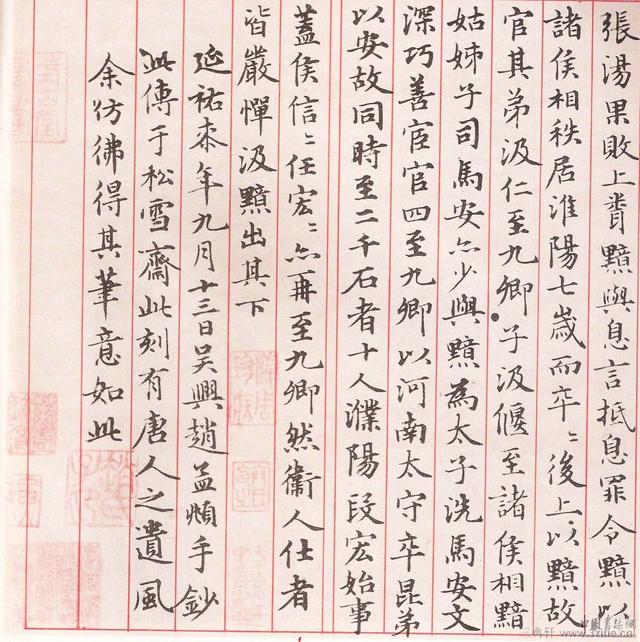 張湯果敗上聞黯與息言抵息罪令黯以
諸侯相秩居淮陽七歲而卒〻後上以黯故
官其弟汲仁至九卿子汲偃至諸侯相黯
姑姊子司馬安亦少與黯為太子洗馬安文
深巧善宦官四至九卿以河南太守卒昆弟
以安故同時至二千石者十人濮陽段宏始事
蓋侯信〻任宏〻亦再至九卿然衞人仕者
皆嚴憚汲黯出其下
延祐柰年九月十三日吳興趙孟頫手鈔
此傳于松雪齋此刻有唐人之遺風
余彷彿得其筆意如此